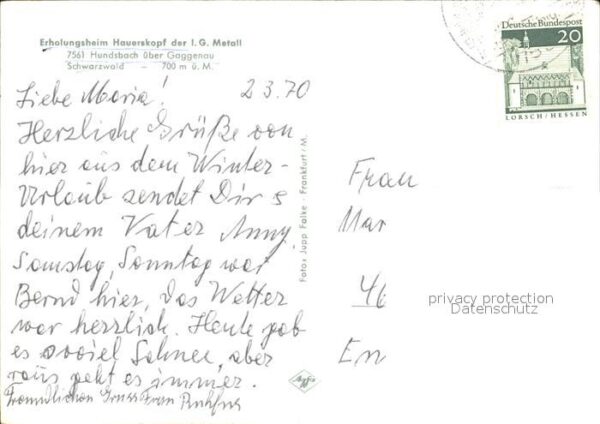 Erholungsheim Hauerskopf der I.G. Metall
7561 Hundsbach über Gaggenau
Schwarzwald – 700 m ü. M.
Deutsche Bundespost
20
LORSCH/HESSEN
Liebe Maria! 2.3.70
Herzliche Grüße von
hier aus dem Winter-
Urlaub sendet Dir &
deinem Vater Anny.
Samstag, Sonntag war
Bernd hier, das Wetter
war herrlich. Heute gab
es soviel Schnee, aber
raus geht es immer.
Freundlichen Gruss Frau
Foto: Jupp Falke - Frankfurt/M.
Agfa
Frau
Mar
46
En
privacy protection
Datenschutz